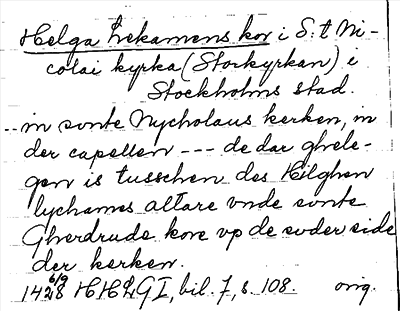 Helga Lekamens kor i S:t Ni-
colai kyrka (Storkyrkan) i
Stockholms stad.
... in svnte Nycholaus kerken, in
der capellen --- de dar ghele-
gen is tusschen des Hilghen
lychames altare vnde svnte
Gherdrude kore vp de suder side
der kerken.
1428 6/9 HHLG I, bil. 7, s. 108. orig.